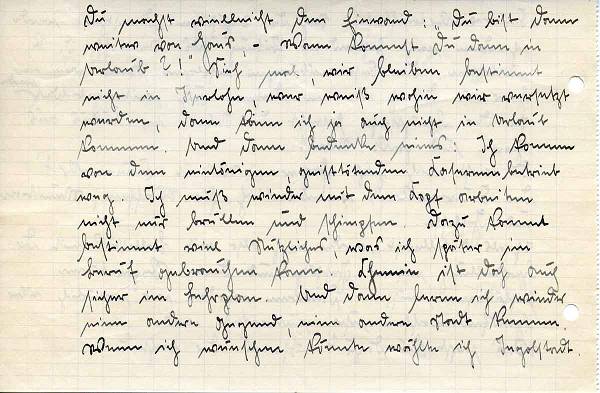 Du machst vielleicht den Einwand: „Du bist dann
weiter von Haus, – wann kommst Du dann in
Urlaub?!" Sieh mal, wir bleiben bestimmt
nicht in Iserlohn, wer weiß wohin wir versetzt
werden, dann kann ich ja auch nicht in Urlaub
kommen. Und dann bedenke eines: Ich komme
von dem eintönigen, geisttötenden Kasernenbetrieb
weg. Ich muß wieder mit dem Kopf arbeiten
nicht nur brüllen und schimpfen. Dazu kommt
bestimmt viel Nützliches, was ich später im
Beruf gebrauchen kann. Chemie ist doch auch
sicher im Lehrplan. Und dann lerne ich wieder
eine andere Gegend, eine andere Stadt kennen.
Wenn ich wünschen könnte wählte ich Ingolstadt.